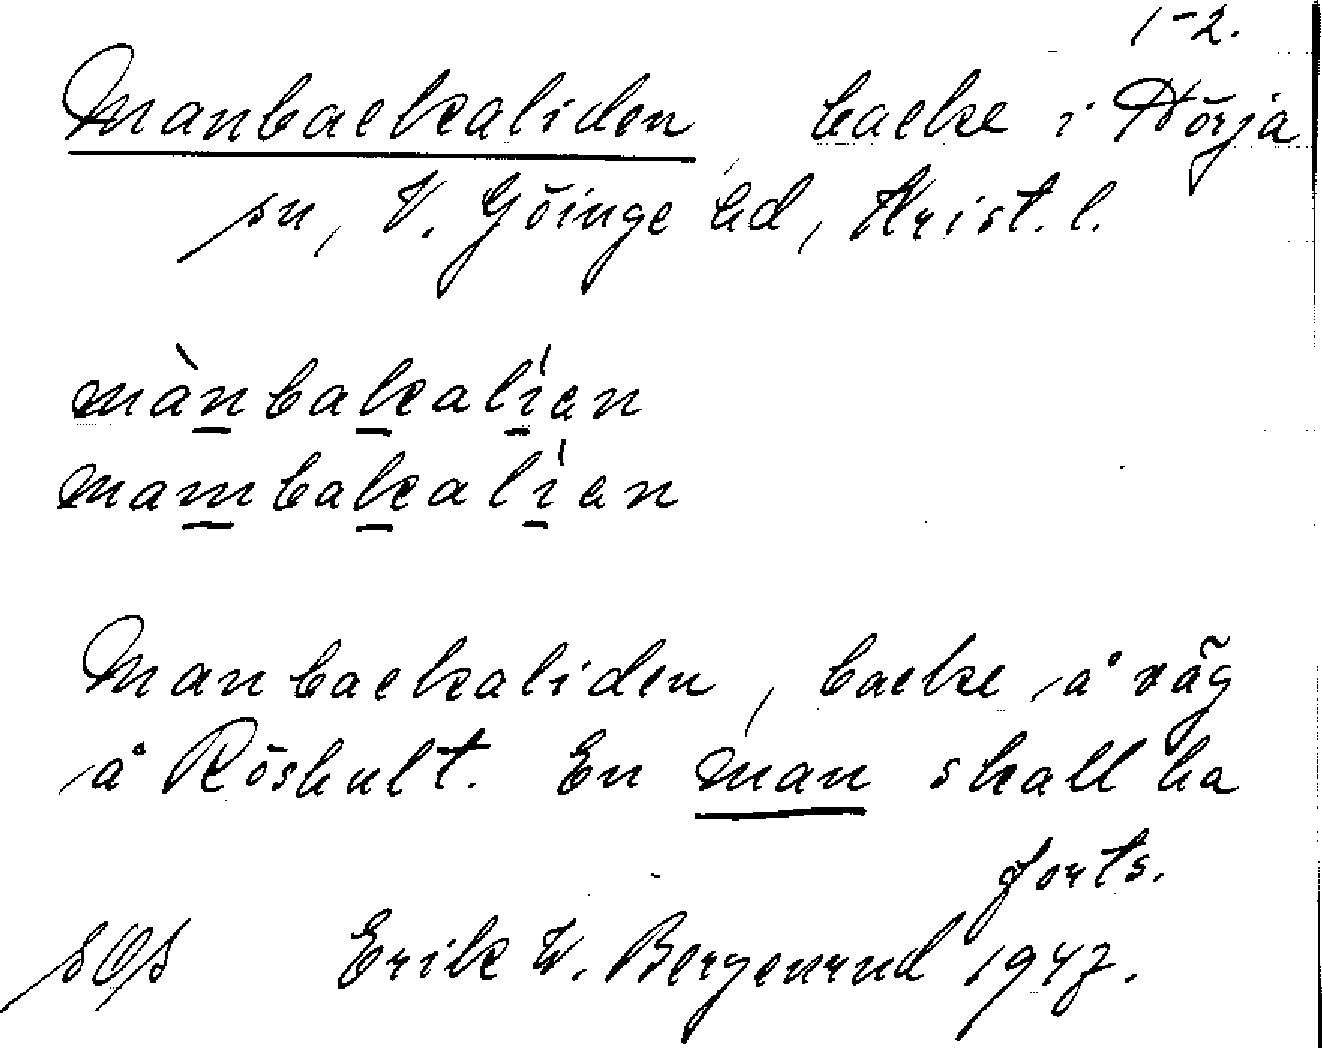 1-2.
Manbackaliden, backe i Hörja
sn, V. Göinge hd, Krist. l.
mànbakalíen
mambakalíen
Manbackaliden, backe å väg
å Röshult. En man skall ha
forts.
Erik W. Bergenrud 1947.